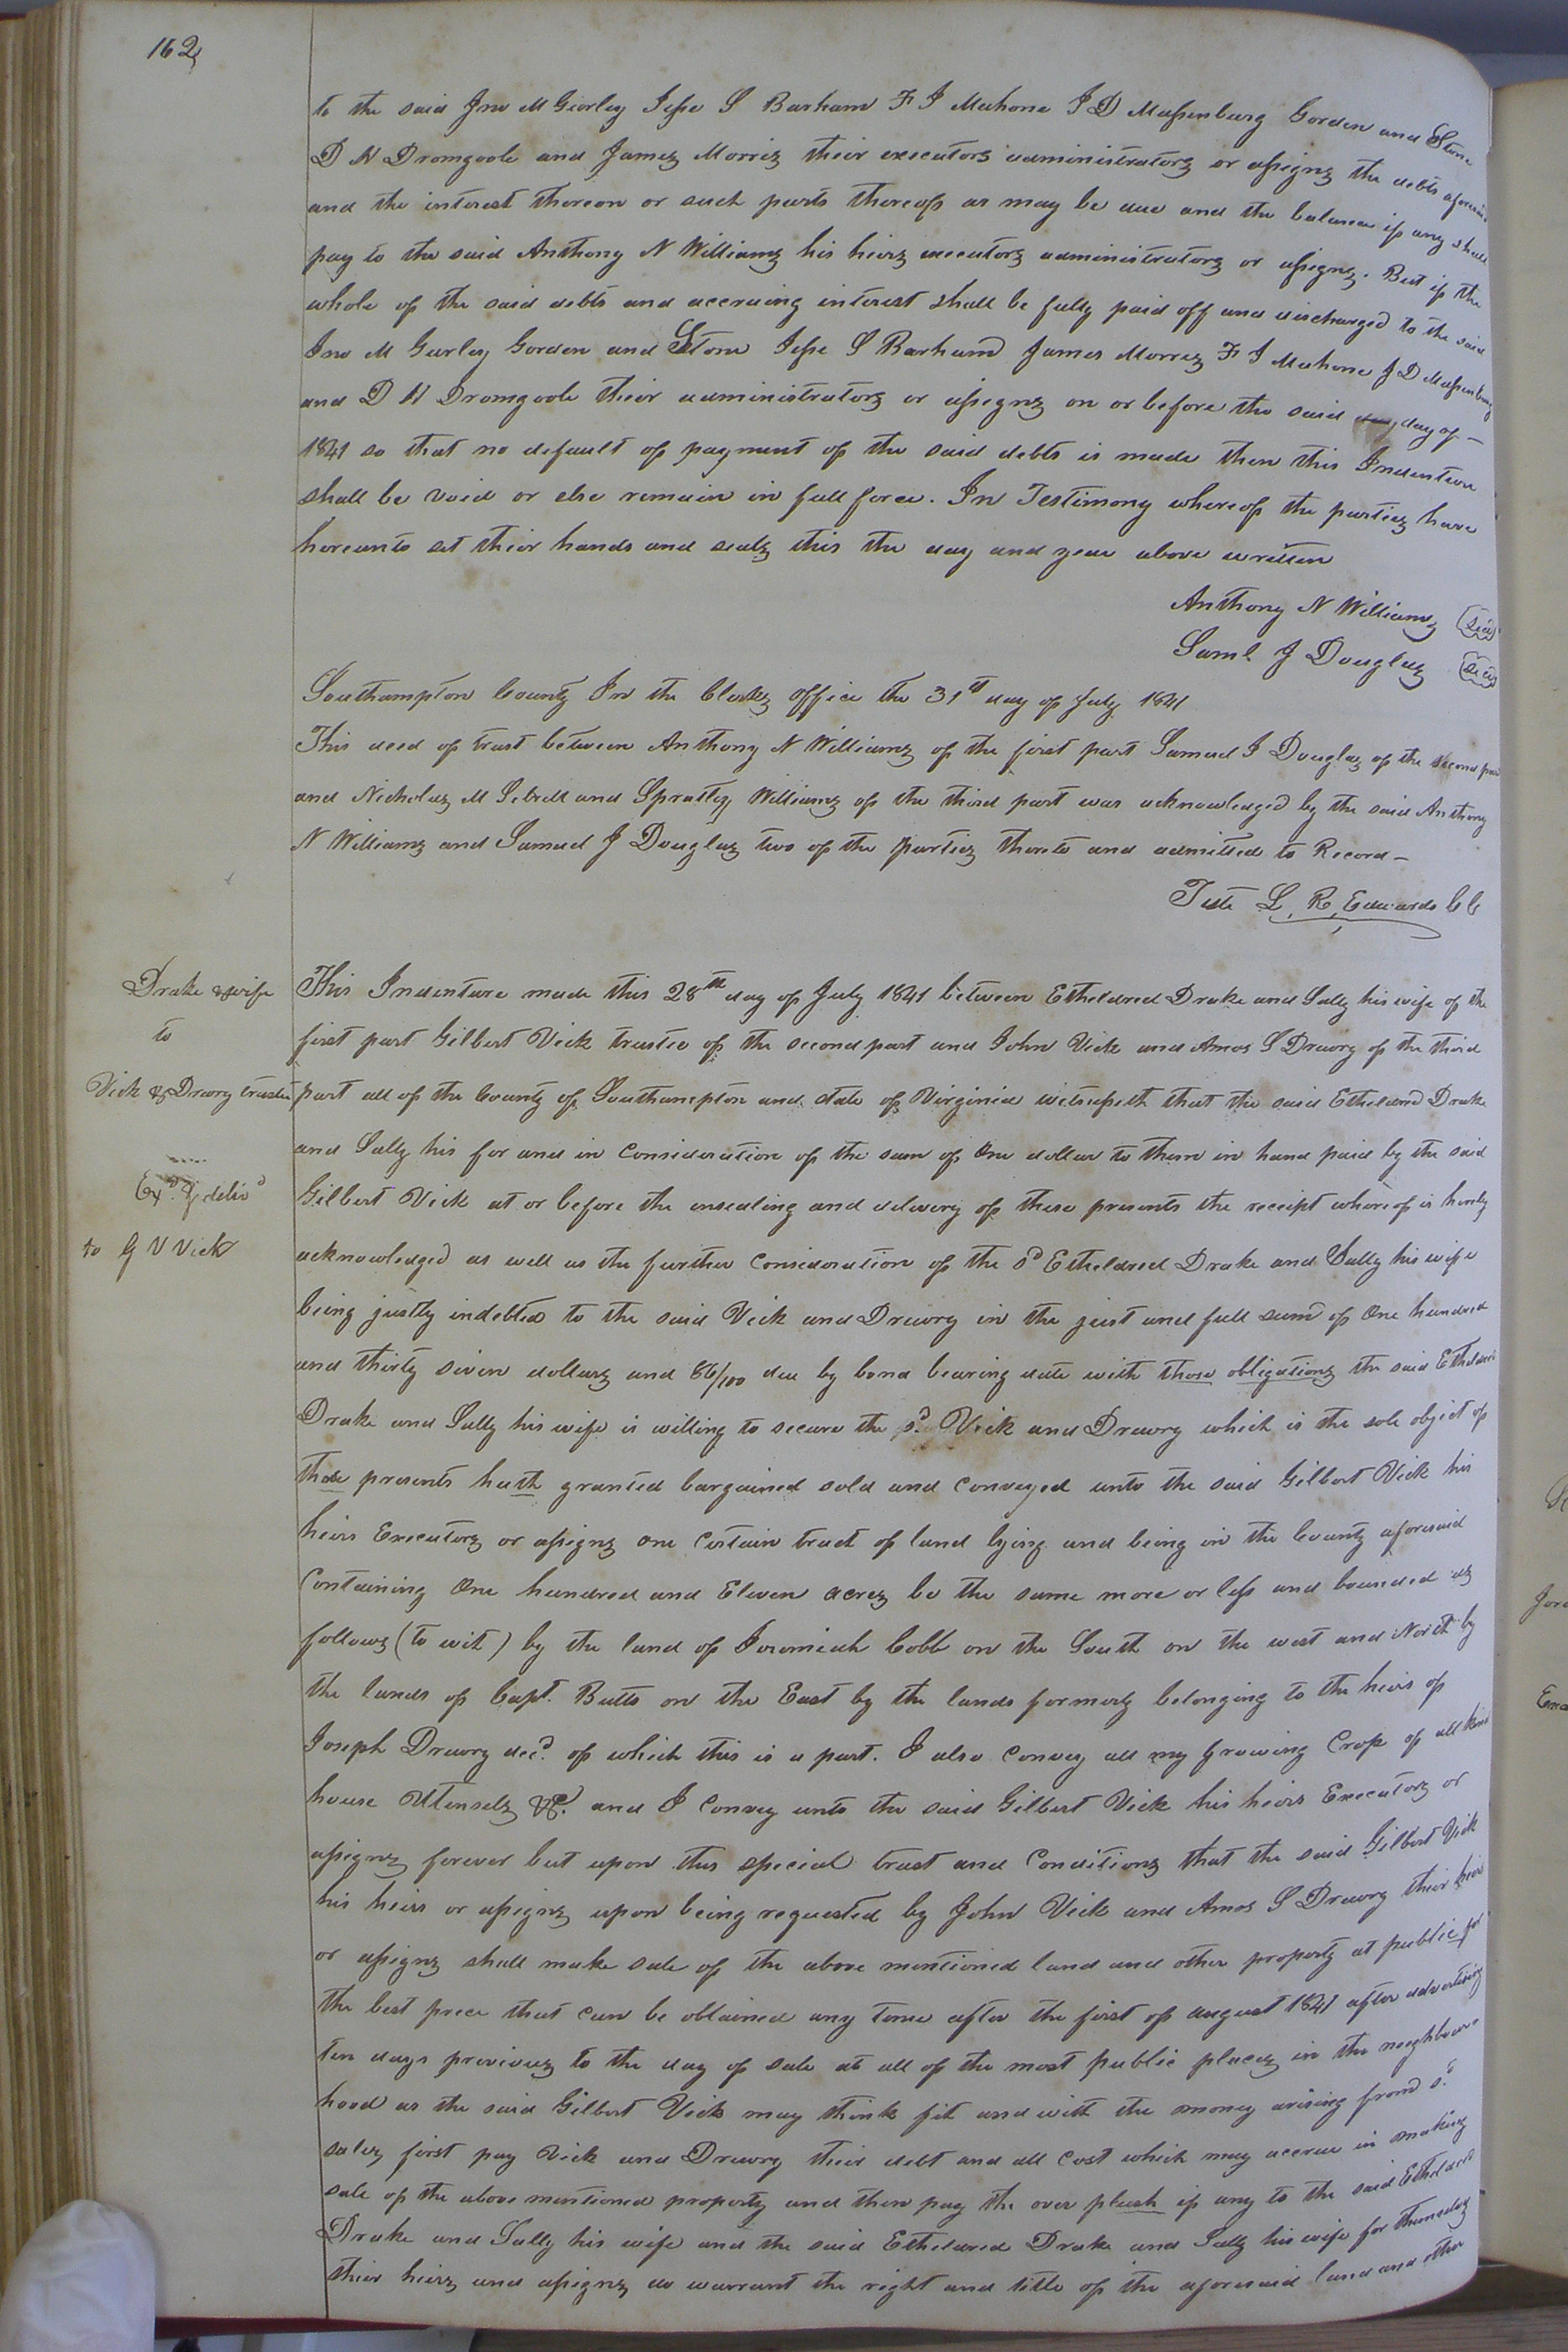 162
to the said Jno M Gurley Jesse S Barham F J Mahone J D Massenburg Gordon and Stone
D N Dromgoole and James Morris their executors administrators or assigns the debts aforesaid
and the interest thereon or such parts thereof as may be due and the balance if any shall
pay to the said Anthony N Williams his heirs executors administrators or assigns. But if the
whole of the said debts and accruing interest shall be fully paid off and discharged to the said
Jno M Gurley Gordon and Stone Jesse S Barham James Morris F J Mahone J D Massenburg
and D N Dromgoole their administrators or assigns on or before the said day of —
1841 so that no default of payment of the said debts is made then this Indenture
shall be void or else remain in full force. In Testimony whereof the parties have
hereunto set their hands and seals this the day and year above written
Anthony N Williams (Seal)
Saml J Douglas (Seal)
Southampton County In the Clerks office the 31st day of July 1841
This deed of trust between Anthony N Williams of the first part Samuel J Douglas of the second part
and Nicholas M Sebrell and Spratley Williams of the third part was acknowledged by the said Anthony
N Williams and Samuel J Douglas two of the parties thereto and admitted to Record —
Teste L. R. Edwards CC
Drake & wife
to
Vick & Drewry trustee
Exd. & delivd
to G V Vick
This Indenture made this 28th day of July 1841 between Etheldred Drake and Sally his wife of the
first part Gilbert Vick trustee of the second part and John Vick and Amos S Drewry of the third
part all of the County of Southampton and state of Virginia witnesseth that the said Etheldred Drake
and Sally his for and in Consideration of the sum of One dollar to them in hand paid by the said
Gilbert Vick at or before the ensealing and delivery of these presents the receipt whereof is hereby
acknowledged as well as the further Consideration of the sd Etheldred Drake and Sally his wife
being justly indebted to the said Vick and Drewry in the just and full sum of One hundred
and thirty seven dollars and 86/100 due by bond bearing date with those obligations the said Etheldred
Drake and Sally his wife is willing to secure the sd. Vick and Drewry which is the sole object of
these presents hath granted bargained sold and Conveyed unto the said Gilbert Vick his
heirs Executors or assigns one Certain tract of land lying and being in the County aforesaid
Containing One hundred and Eleven acres be the same more or less and bounded as
follows (to wit) by the land of Jeremiah Cobb on the South on the west and North by
the lands of Capt. Butts on the East by the lands formerly belonging to the heirs of
Joseph Drewry decd. of which this is a part. I also Convey all my growing Crop of all kind
house Utensels &C. and I Convey unto the said Gilbert Vick his heirs Executors or
assigns forever but upon this special trust and Conditions that the said Gilbert Vick
his heirs or assigns upon being requested by John Vick and Amos S Drewry their heirs
or assigns shall make sale of the above mentioned land and other property at public for
the best price that can be obtained any time after the first of august 1841 after advertising
ten days previous to the day of sale at all of the most public places in the neighbour
hood as the said Gilbert Vick may think fit and with the money arising from sd.
sales first pay Vick and Drewry their debt and all cost which may accrue in making
sale of the above mentioned property and then pay the over plush if any to the said Etheldred
Drake and Sally his wife and the said Etheldred Drake and Sally his wife for themselves
their heirs and assigns do warrant the right and title of the aforesaid land and other